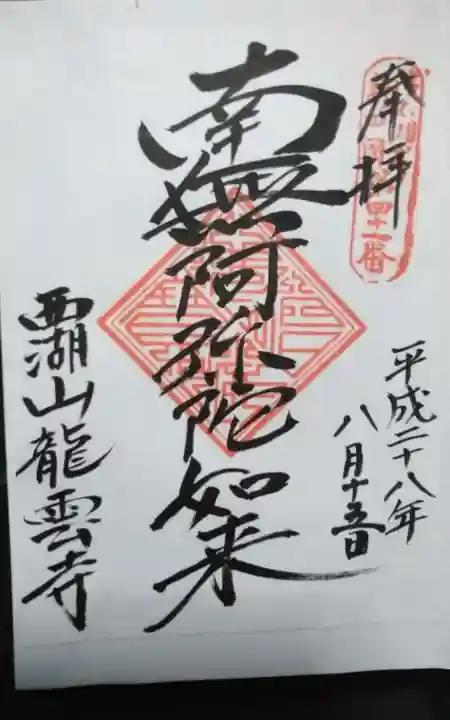 奉拝
四十一番
平成二十八年
八月十五日
南無阿弥陀如来
西湖山龍雲寺